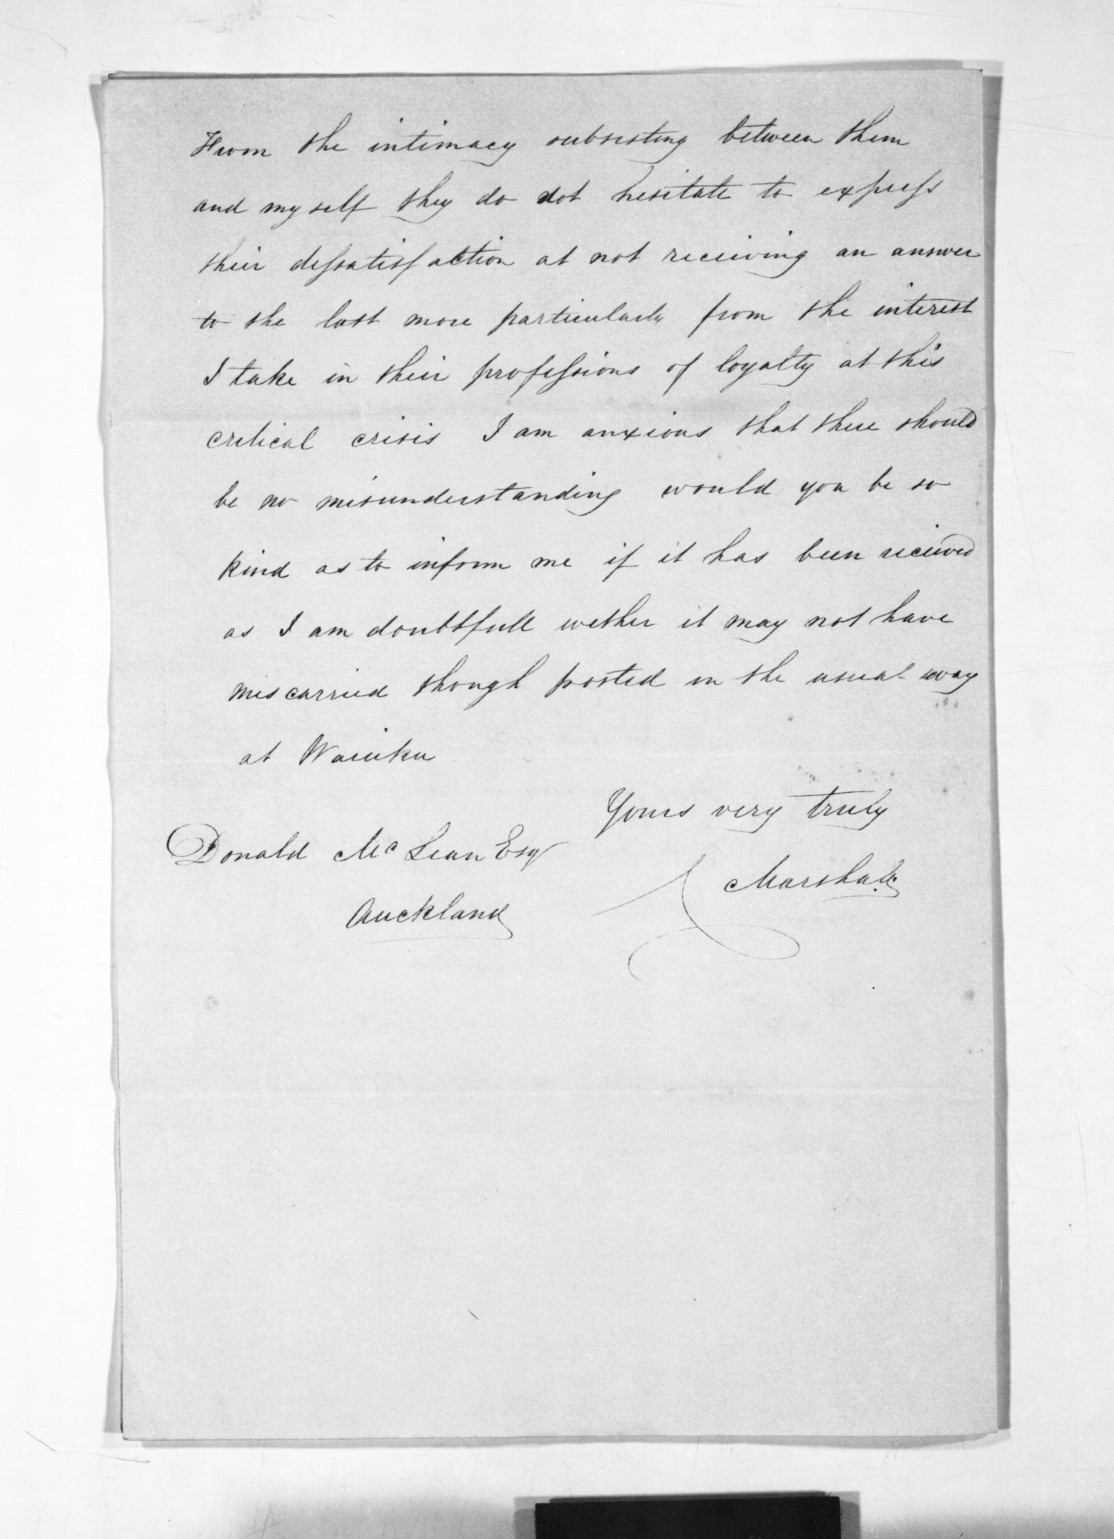 From the intimacy subsisting between them
and my self they do not hesitate to express
their dessatisfaction at not receiving an answer
to the last more particularly from the interest
I take in their professions of loyalty at this
critical crisis I am anxious that there should
be no misunderstanding would you be so
kind as to inform me if it has been recieved
as I am doubtfull wether it may not have
miscarried though posted in the usual way
at Waiuku
Yours very truly
Marshall
Donald McLean Esqr
Auckland